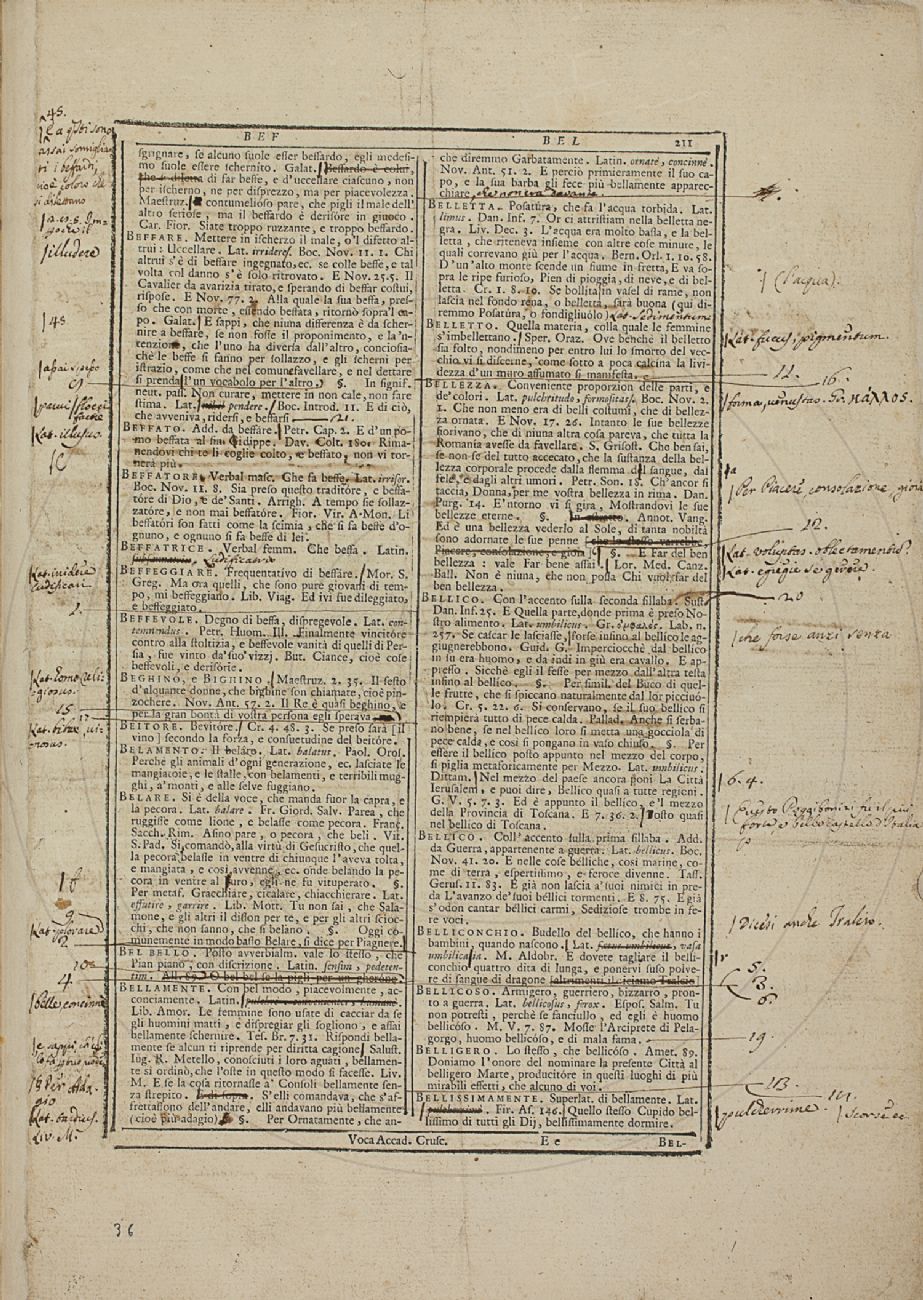 BEF
BEL
211
sgignare, se alcuno suole esser beffardo, egli medesi-
mo suole essere schernito. Galat. Beffardo è colui,
che si diletta di far beffe, e d'uccellare ciascuno, non
per ischerno, ne per disprezzo, ma per piacevolezza.
Maestruz. contumelioso pare, che pigli il male dell'
altro seriose, ma il beffardo è derisore in giuoco.
Car. Fior. Siate troppo ruzzante, e troppo beffardo.
BEFFARE. Mettere in ischerzo il male, o'l difetto al-
trui: Uccellare. Lat. irridere. Boc. Nov. 11. 1. Chi
altrui s'è di beffare ingegnato, ec. se colle beffe, e tal
volta col danno s'è solo ritrovato. E Nov. 25. 5. Il
Cavalier da avarizia tirato, e sperando di beffar costui,
rispose. E Nov. 77. 2. Alla quale la sua beffa, pres-
so che con morte, essendo beffata, ritornò sopra'l ca-
po. Galat. E sappi, che niuna differenza è da scher-
nire a beffare, se non fosse il proponimento, e la'n-
tenzione, che l'uno ha diversa dall'altro, conciossia-
chè le beffe si fanno per sollazzo, e gli scherni per
istrazio, come che nel comune favellare, e nel dettare
si prenda l'un vocabolo per l'altro. §. In signif.
neut. pass. Non curare, mettere in non cale, non fare
stima. Lat. pendere. Boc. Introd. 11. E di ciò,
che avveniva, ridersi, e beffarsi
BEFFATO. Add. da beffare. Petr. Cap. 2. E d'un po-
mo beffata al fin Cidippe. Dav. Colt. 180. Rima-
nendovi chi te li coglie colto, e beffato, non vi tor-
nerà più.
BEFFATORE. Verbal masc. Che fa beffe. Lat. irrisor.
Boc. Nov. 11. 8. Sia preso questo traditore, e beffa-
tóre di Dio, e de' Santi. Arrigh. A tempo sie sollaz-
zatóre, e non mai beffatóre. Fior. Vir. A. Mon. Li
beffatóri son fatti come la scimia, che si fa beffe d'o-
gnuno, e ognuno si fa beffe di lei.
BEFFATRICE. Verbal femm. Che beffa. Latin.
BEFFEGGIARE. Frequentativo di beffare. Mor. S.
Greg. Ma ora quelli, che sono pure giovani di tem-
po, mi beffeggiano. Lib. Viag. Ed ivi fue dileggiato,
e beffeggiato.
BEFFEVOLE. Degno di beffa, dispregevole. Lat. con-
temnendus. Petr. Huom. Ill. Finalmente vincitóre
contro alla stoltizia, e beffevole vanità di quelli di Per-
sia, fue vinto da' suo' vizzj. But. Ciance, cioè cose
beffevoli, e derisòrie.
BEGHINO, e BIGHINO. Maestruz. 2. 35. Il sesto
d'alquante donne, che bighine son chiamate, cioè pin-
zochere. Nov. Ant. 57. 2. Il Re è quasi beghino, e
per la gran bontà di vostra persona egli sperava
BEITORE. Bevitóre. Cr. 4. 48. 3. Se preso sarà [il
vino] secondo la forza, e consuetudine del beitóre.
BELAMENTO. Il beláre. Lat. balatus. Paol. Oros.
Perchè gli animali d'ogni generazione, ec. lasciate le
mangiatoie, e le stalle, con belamenti, e terribili mug-
ghi, a' monti, e alle selve fuggiano.
BELARE. Si è della voce, che manda fuor la capra, e
la pecora. Lat. balare. Fr. Giord. Salv. Parea, che
ruggisse come lione, e belasse come pecora. Franc.
Sacch. Rim. Asino pare, o pecora, che beli. Vit.
S. Pad. Si comandò, alla virtù di Gesucristo, che quel-
la pecora belasse in ventre di chiunque l'aveva tolta,
e mangiata, e così avvenne, ec. onde belando la pe-
cora in ventre al furo, egli ne fu vituperato. §.
Per metaf. Gracchiare, cicalare, chiacchierare. Lat.
effutire, garrire. Lib. Mott. Tu non sai, che Sala-
mone, e gli altri il disson per te, e per gli altri scioc-
chi, che non sanno, che si bélano. §. Oggi co-
munemente in modo basso Belare, si dice per Piagnere.
BEL BELLO. Posto avverbialm. vale lo stesso, che
Pian piano, con discrizione. Latin. sensim, pedeten-
tim.
BELLAMENTE. Con bel modo, piacevolmente, ac-
conciamente. Latin.
Lib. Amor. Le femmine sono usate di cacciar da se
gli huomini matti, e dispregiar gli sogliono, e assai
bellamente schernire. Tes. Br. 7. 31. Rispondi bella-
mente se alcun ti riprende per diritta cagione. Salust.
Iug. R. Metello, conosciuti i loro aguati, bellamen-
te si ordinò, che l'oste in questo modo si facesse. Liv.
M. E se la cosa ritornasse a' Consoli bellamente sen-
za strepito. S'elli comandava, che s'af-
frettassono dell'andare, elli andavano più bellamente
(cioè più adagio) §. Per Ornatamente, che an-
che diremmo Garbatamente. Latin. ornatè, concinnè.
Nov. Ant. 51. 2. E perciò primieramente il suo ca-
po, e la sua barba gli fece più bellamente apparec-
chiare,
BELLETTA. Posatúra, che fa l'acqua torbida. Lat.
limus. Dan. Inf. 7. Or ci attristiam nella belletta ne-
gra. Liv. Dec. 3. L'acqua era molto bassa, e la bel-
letta, che riteneva insieme con altre cose minute, le
quali correvano giù per l'acqua. Bern. Orl. 1. 10. 58.
D'un'alto monte scende un fiume in fretta, E va so-
pra le ripe furioso, Pien di pioggia, di neve, e di bel-
letta. Cr. 1. 8. 10. Se bollita in vasel di rame, non
lascia nel fondo rena, o belletta, sarà buona (qui di-
remmo Posatúra, o fondigliuòlo) Lat. Sedimentum
BELLETTO. Quella materia, colla quale le femmine
s'imbellettano. Sper. Oraz. Ove benchè il belletto
sia folto, nondimeno per entro lui lo smorto del vec-
chio vi si discerne, come sotto a poca calcina la livi-
dezza d'un muro assumato si manifesta.
BELLEZZA. Conveniente proporzion delle parti, e
de' colori. Lat. pulchritudo, formositas. Boc. Nov. 2.
1. Che non meno era di belli costumi, che di bellez-
za ornata. E Nov. 17. 26. Intanto le sue bellezze
fiorivano, che di niuna altra cosa pareva, che tutta la
Romanìa avesse da favellare. S. Grisost. Che ben sai,
se non se del tutto accecato, che la sustanza della bel-
lezza corporale procede dalla flemma del sangue, dal
fele, e dagli altri umori. Petr. Son. 18. Ch'ancor si
taccia, Donna, per me vostra bellezza in rima. Dan.
Purg. 14. E'ntorno vi si gira, Mostrandovi le sue
bellezze eterne. §. Annot. Vang.
Ed è una bellezza vederlo al Sole, di tanta nobiltà
sono adornate le sue penne
Piacere, consolazione, e gioia. §. E Far del ben
bellezza: vale Far bene assai. Lor. Med. Canz.
Ball. Non è niuna, che non possa Chi vuol far del
ben bellezza.
BELLICO. Con l'accento sulla seconda sillaba. Sust.
Dan. Inf. 25. E Quella parte, donde prima è preso No-
stro alimento. Lat. umbilicus. Gr. ὀμφαλός. Lab. n.
257. Se cascar le lasciasse, forse infino al bellico le ag-
giugnerebbono. Guid. G. Imperciocchè dal bellico
in su era huomo, e da indi in giù era cavallo. E ap-
presso. Sicchè egli il fesse per mezzo dall'altra testa
infino al bellico. §. Per simil. del Buco di quel-
le frutte, che si spiccano naturalmente dal lor picciuò-
lo. Cr. 5. 22. 6. Si conservano, se il suo bellico si
riempierà tutto di pece calda. Pallad. Anche si serba-
no bene, se nel bellico loro si metta una gocciola di
pece calda, e così si pongano in vaso chiuso. §. Per
essere il bellico posto appunto nel mezzo del corpo,
si piglia metaforicamente per Mezzo. Lat. umbilicus.
Dittam. Nel mezzo del paese ancora poni La Città
Ierusalem, e puoi dire, Bellico quasi a tutte regioni.
G. V. 5. 7. 3. Ed è appunto il bellico, e'l mezzo
della Provincia di Toscana. E 7. 36. 2. Posto quasi
nel bellico di Toscana.
BELLICO. Coll'accento sulla prima sillaba. Add.
da Guerra, appartenente a guerra. Lat. bellicus. Boc.
Nov. 41. 20. E nelle cose bélliche, così marine, co-
me di terra, espertissimo, e feroce divenne. Tass.
Gerus. 11. 83. E già non lascia a' suoi nimici in pre-
da L'avanzo de' suoi béllici tormenti. E 8. 75. E già
s'odon cantar béllici carmi, Sediziose trombe in fe-
re voci.
BELLICONCHIO. Budello del bellico, che hanno i
bambini, quando nascono. Lat. vasa
umbilicalia. M. Aldobr. E dovete tagliare il belli-
conchio quattro dita di lunga, e ponervi suso polve-
re di sangue di dragone
BELLICOSO. Armigero, guerriero, bizzarro, pron-
to a guerra. Lat. bellicosus, ferox. Espos. Salm. Tu
non potresti, perchè se' fanciullo, ed egli è huomo
bellicóso. M. V. 7. 87. Mosse l'Arciprete di Pela-
gorgo, huomo bellicóso, e di mala fama.
BELLIGERO. Lo stesso, che bellicóso. Amet. 89.
Doniamo l'onore del nominare la presente Città al
belligero Marte, producitore in questi luoghi di più
mirabili effetti, che alcuno di voi.
BELLISSIMAMENTE. Superlat. di bellamente. Lat.
Fir. As. 146. Quello stesso Cupido bel-
lissimo di tutti gli Dij, bellissimamente dormire.
Voca. Accad. Crusc.
E e
BEL-
48.
illudere
48
Lat. illusus.
Lat. plorare
10
4
Lat. tardius.
Liv. M.
(l'acqua).
Lat. fucus, pigmentum.
12.
16.
Per Piacere consolazione gioia
12.
Lat. voluptas. oblectamentum
20
che forse anzi senza
6. 4.
Dicesi anche Tralcio.
5.
3.
6
19
13
14.
pulcherrime.
36